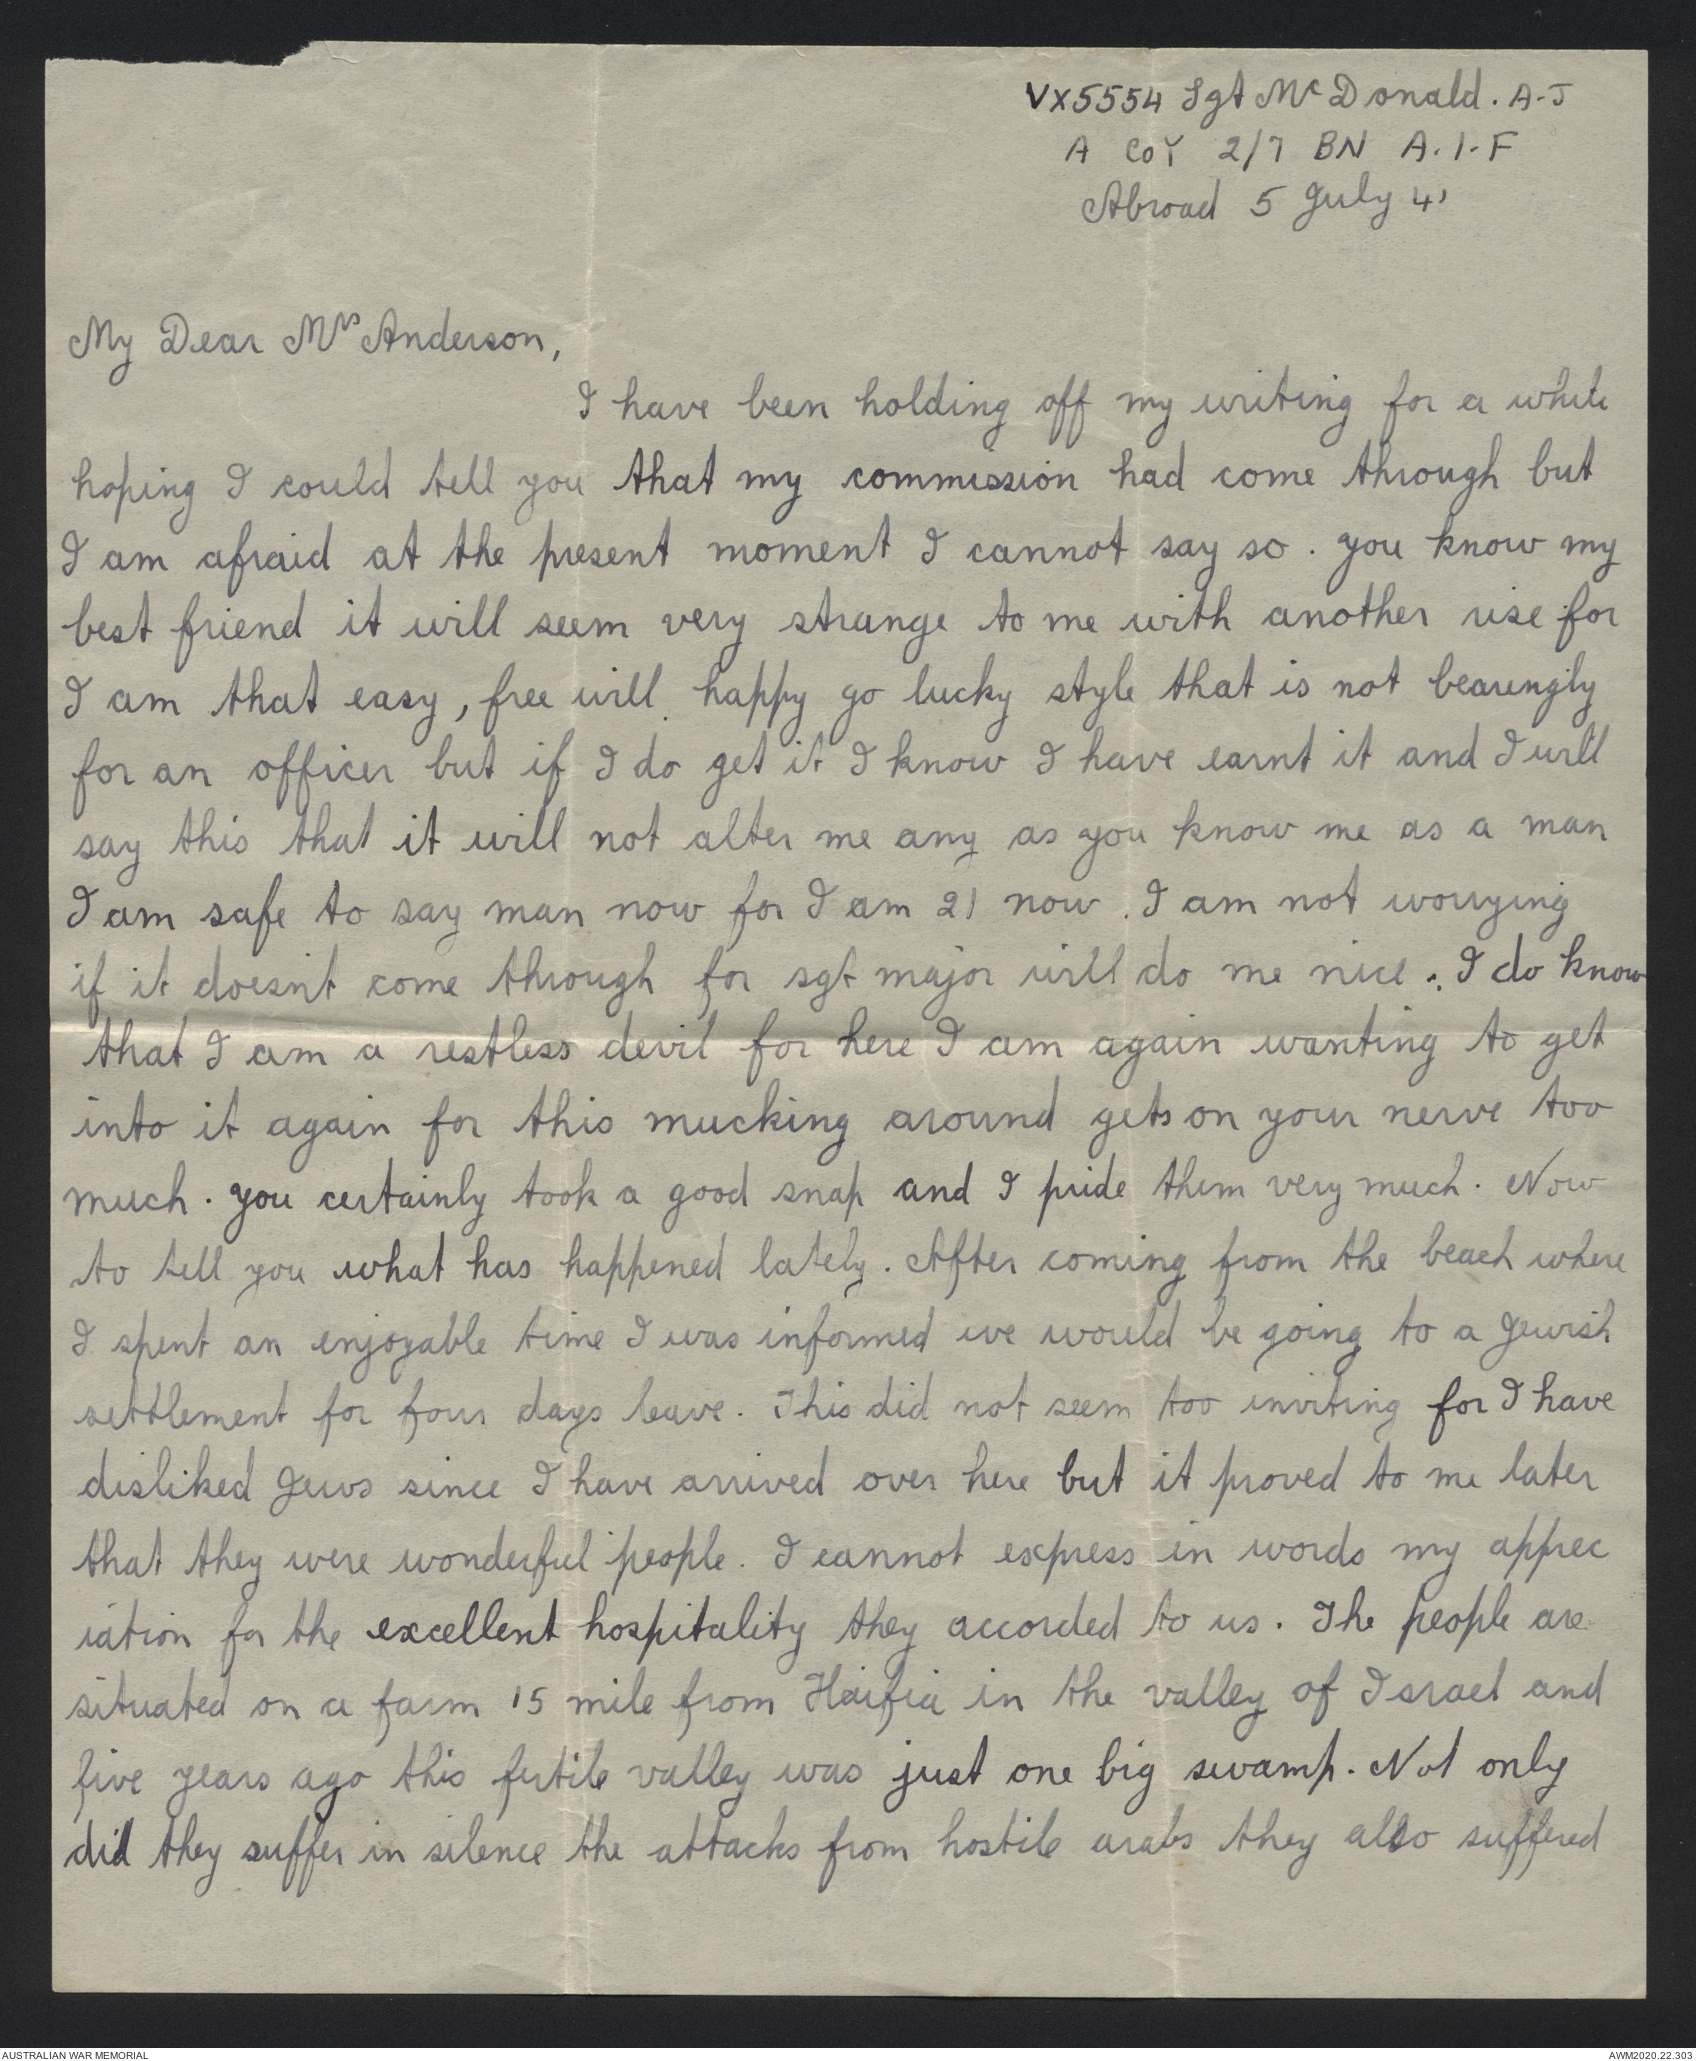 VX5554 Sgt McDonald. A-J
A CoY 2/7 BN A.I.F
Abroad 5 July 41
My Dear Mrs Anderson,
I have been holding off my writing for a while
hoping I could tell you that my commission had come through but
I am afraid at the present moment I cannot say so. you know my
best friend it will seem very strange to me with another rise for
I am that easy, free will happy go lucky style that is not bearingly
for an officer but if I do get it I know I have earnt it and I will
say this that it will not alter me any as you know me as a man
I am safe to say man now for I am 21 now. I am not worrying
if it doesn't come through for sgt major will do me nice. I do know
that I am a restless devil for here I am again wanting to get
into it again for this mucking around gets on your nerve too
much. you certainly took a good snap and I pride them very much. Now
to tell you what has happened lately. After coming from the beach where
I spent an enjoyable time I was informed we would be going to a Jewish
settlement for four days leave. This did not seem too inviting for I have
disliked Jews since I have arrived over here but it proved to me later
that they were wonderful people. I cannot express in words my apprec
iation for the excellent hospitality they accorded to us. The people are
situated on a farm 15 mile from Haifia in the valley of Israel and
five years ago this fertile valley was just one big swamp. Not only
did they suffer in silence the attacks from hostile arabs they also suffered
AUSTRALIAN WAR MEMORIAL
AWM2020.22.303